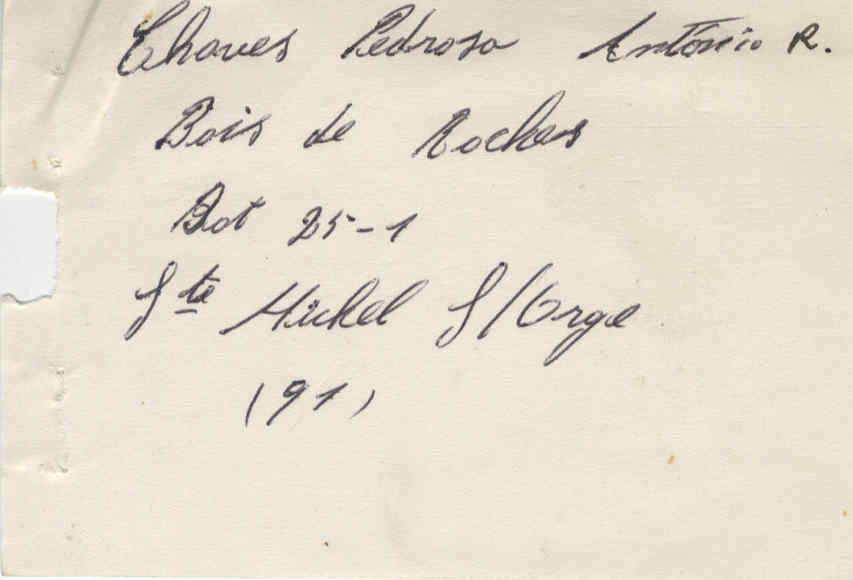 Chaves Pedroso António R.
Bois de Roches
Bat 25-1
Ste Michel S/Orge
(91)